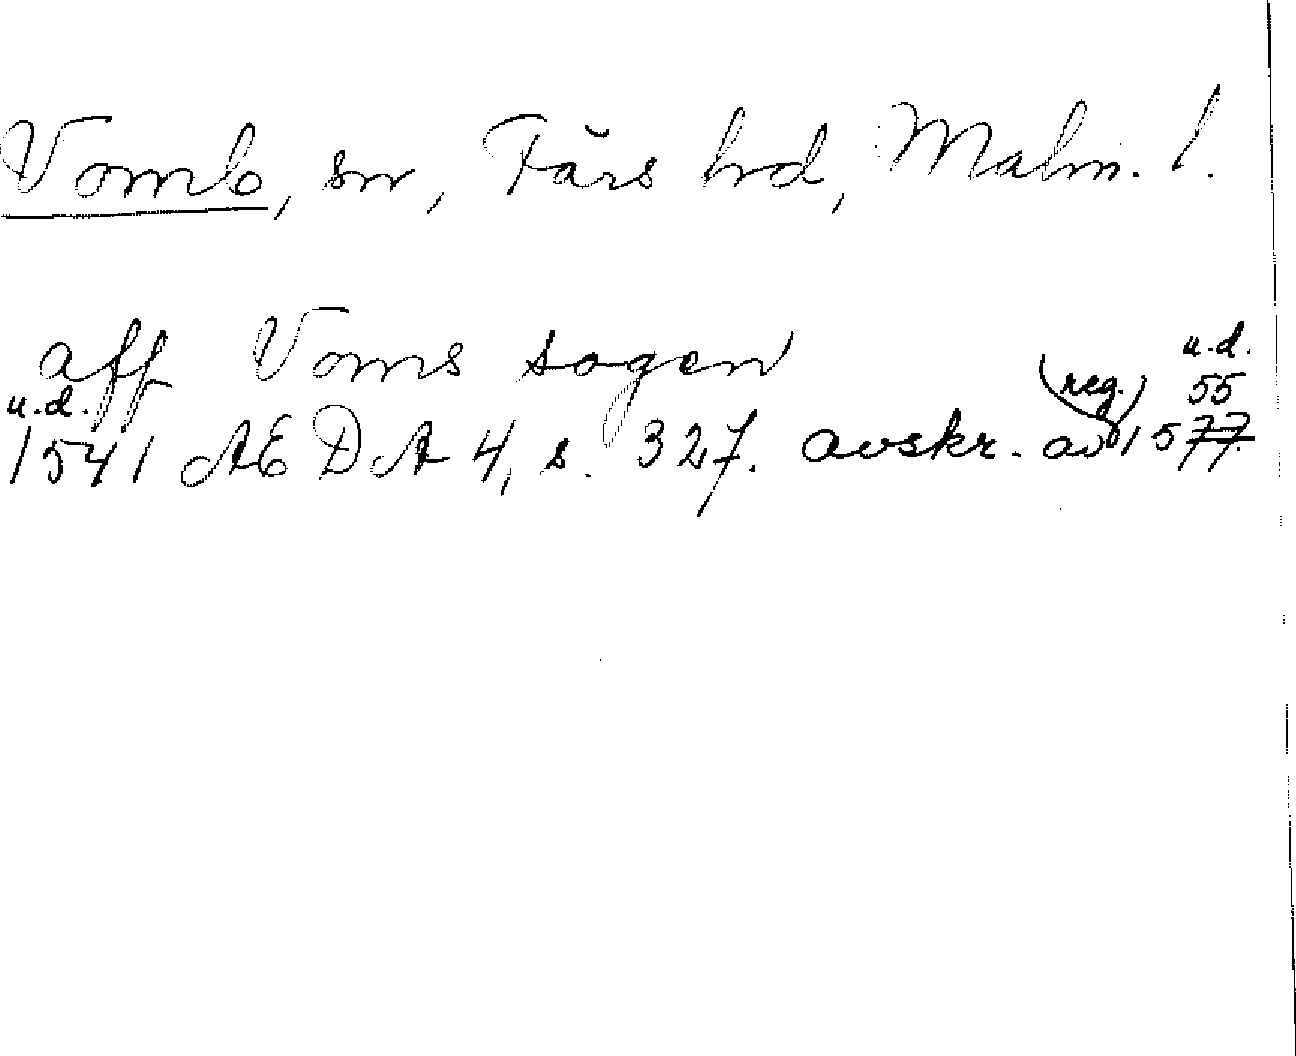 Vomb, sn, Färs hd, Malm. l.
aff Voms sogen
u.d. (reg.) u.d. 55
1541 AEDA 4, s. 327. avskr. av 1577.